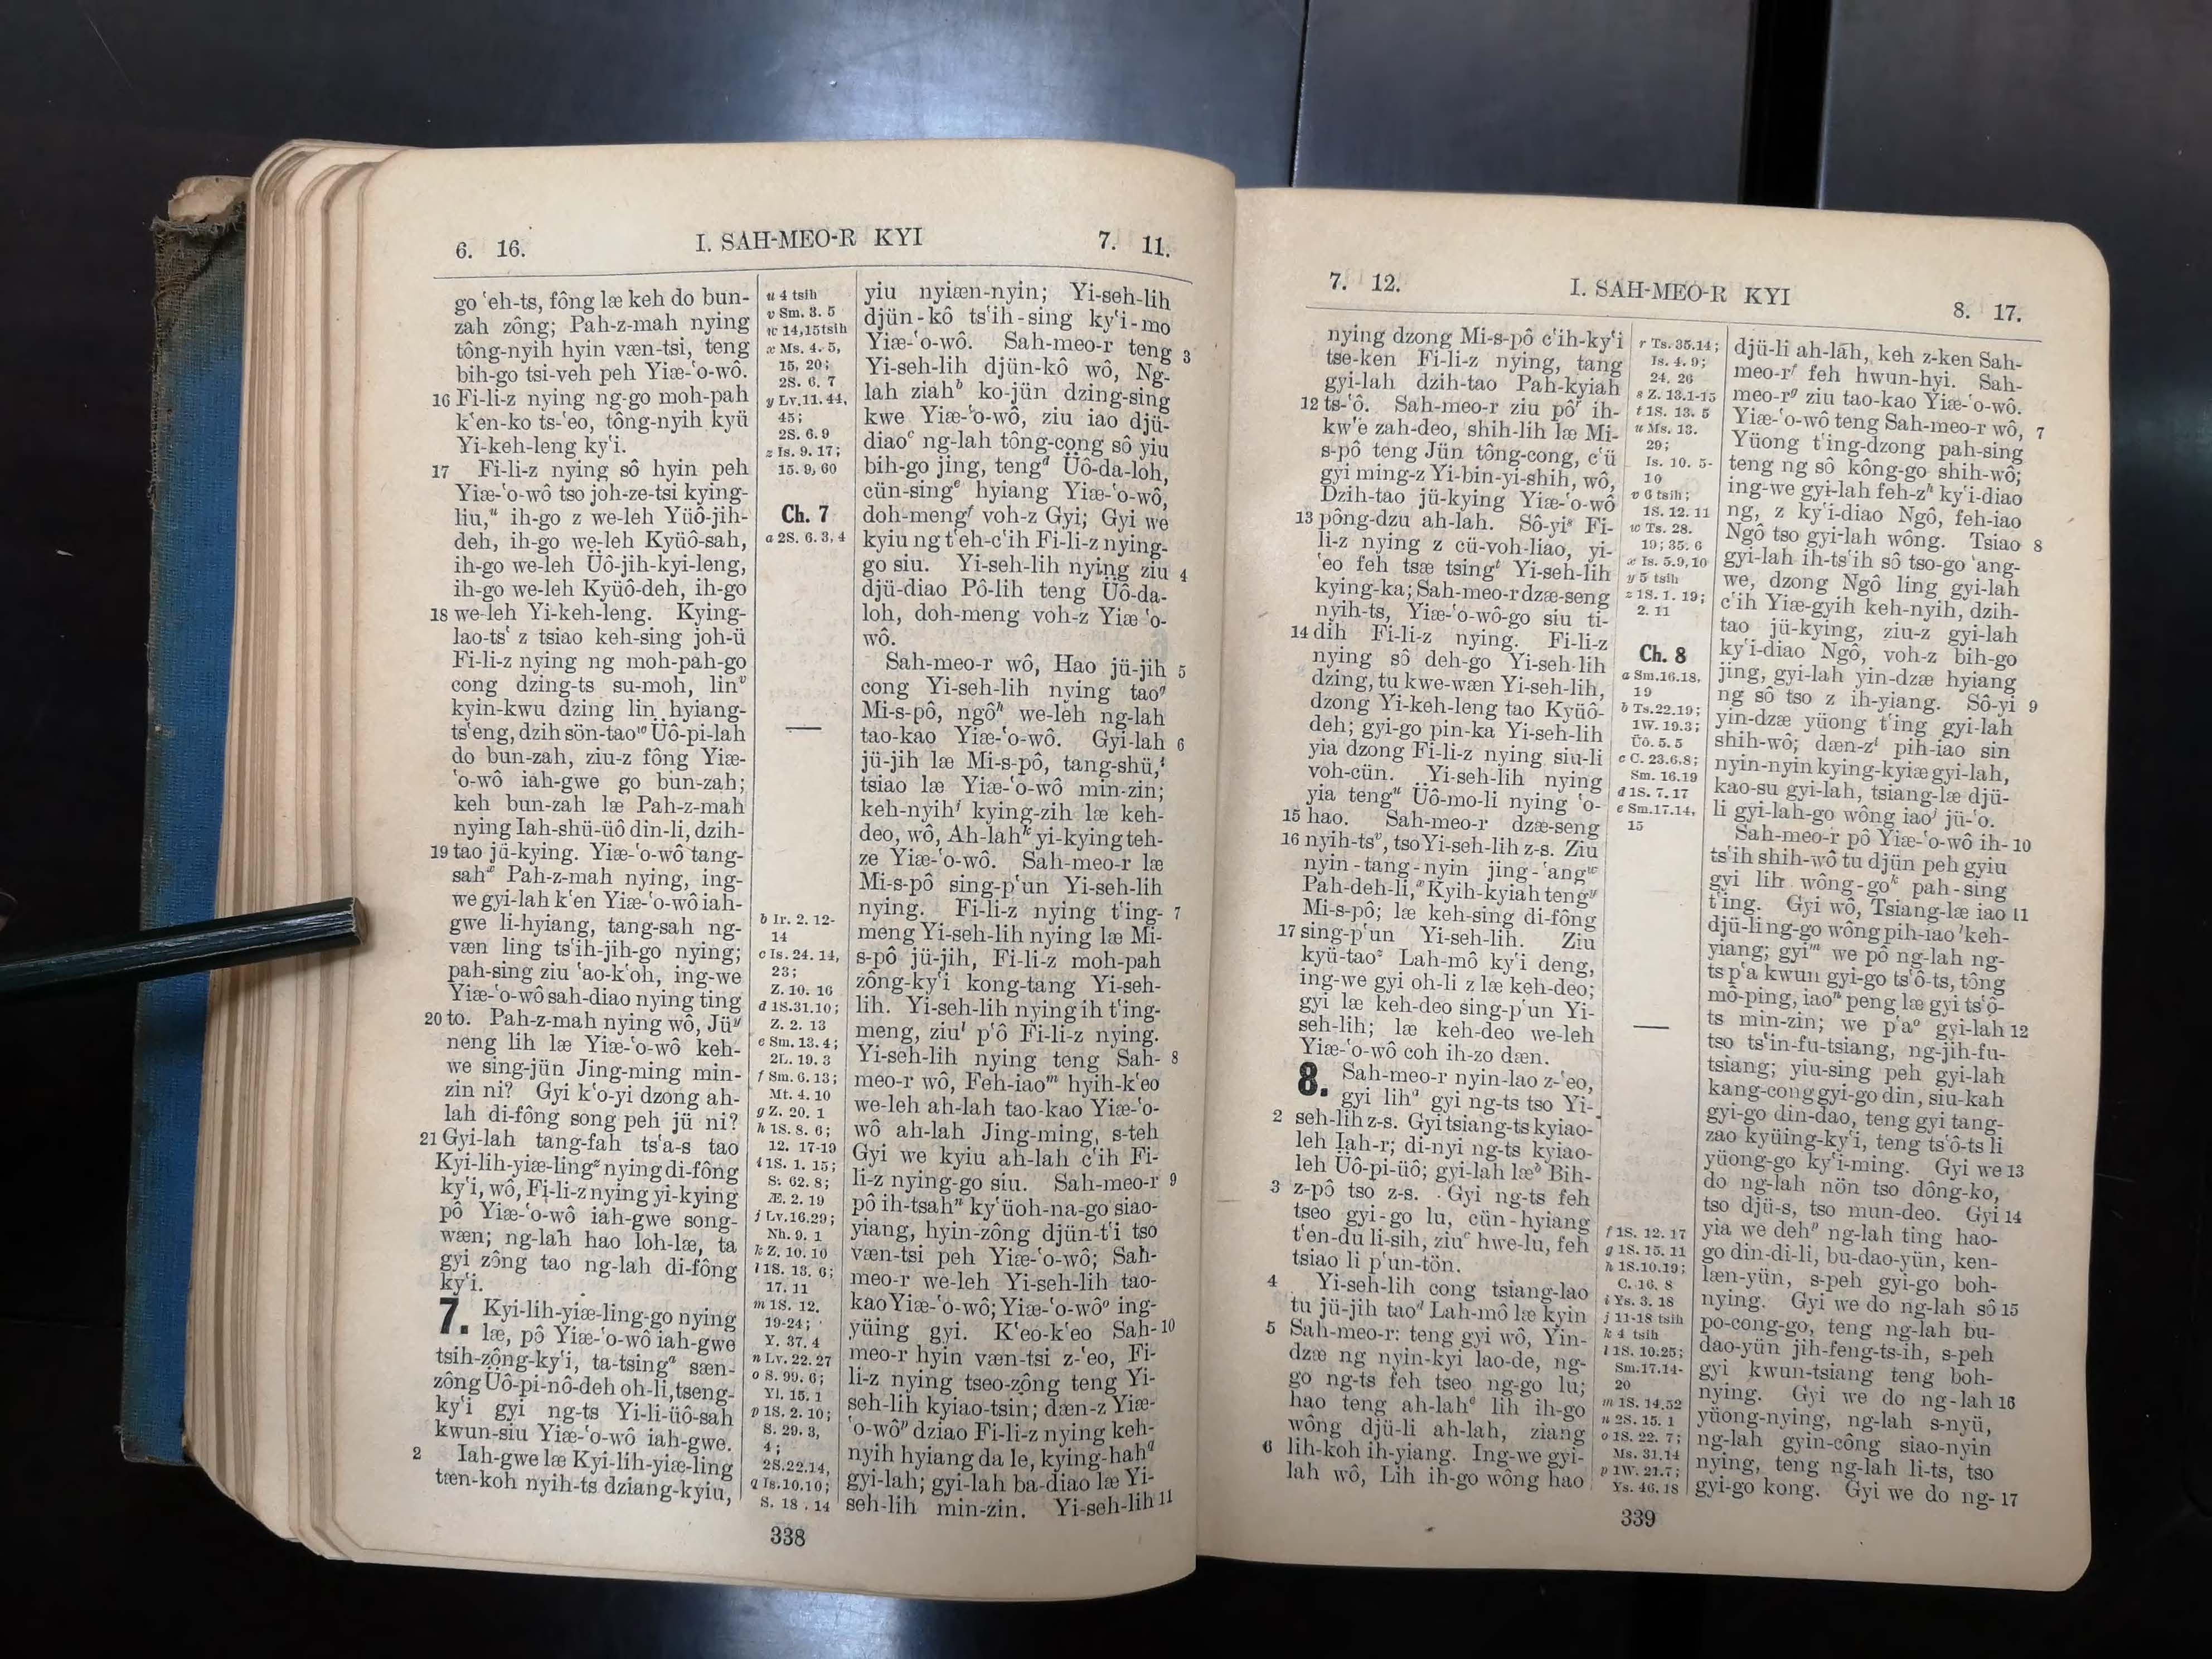 6. 16.
I. SAH-MEO-R KYI
7. 11.
go ‘eh-ts, fông læ keh do bun-
zah zông; Pah-z-mah nying
tông-nyih hyin væn-tsi, teng
bih-go tsi-veh peh Yiæ-‘o-wô.
16 Fi-li-z nying ng-go moh-pah
k‘en-ko ts-‘eo, tông-nyih kyü
Yi-keh-leng ky‘i.
17 Fi-li-z nying sô hyin peh
Yiæ-‘o-wô tso joh-ze-tsi kying-
liu,u ih-go z we-leh Yüô-jih-
deh, ih-go we-leh Kyüô-sah,
ih-go we-leh Üô-jih-kyi-leng,
ih-go we-leh Kyüô-deh, ih-go
18 we-leh Yi-keh-leng. Kying-
lao-ts‘ z tsiao keh-sing joh-ü
Fi-li-z nying ng moh-pah-go
cong dzing-ts su-moh, linv
kyin-kwu dzing lin hyiang-
ts‘eng, dzih sön-taow Üô-pi-lah
do bun-zah, ziu-z fông Yiæ-
‘o-wô iah-gwe go bun-zah;
keh bun-zah læ Pah-z-mah
nying Iah-shü-üô din-li, dzih-
19 tao jü-kying. Yiæ-‘o-wô tang-
sahx Pah-z-mah nying, ing-
we gyi-lah k‘en Yiæ-‘o-wô iah-
gwe li-hyiang, tang-sah ng-
væn ling ts‘ih-jih-go nying;
pah-sing ziu ‘ao-k‘oh, ing-we
Yiæ-‘o-wô sah-diao nying ting
20 to. Pah-z-mah nying wô, Jüy
neng lih læ Yiæ-‘o-wô keh-
we sing-jün Jing-ming min-
zin ni? Gyi k‘o-yi dzong ah-
lah di-fông song peh jü ni?
21 Gyi-lah tang-fah ts‘a-s tao
Kyi-lih-yiæ-lingz nying di-fông
ky‘i, wô, Fi-li-z nying yi-kying
pô Yiæ-‘o-wô iah-gwe song-
wæn; ng-lah hao loh-læ, ta
gyi zông tao ng-lah di-fông
ky‘i.
7. Kyi-lih-yiæ-ling-go nying
læ, pô Yiæ-‘o-wô iah-gwe
tsih-zông-ky‘i, ta-tsinga sæn-
zông Üô-pi-nô-deh oh-li, tseng-
ky‘i gyi ng-ts Yi-li-üô-sah
kwun-siu Yiæ-‘o-wô iah-gwe.
2 Iah-gwe læ Kyi-lih-yiæ-ling
tæn-koh nyih-ts dziang-kyiu,
u 4 tsih
v Sm. 3. 5
w 14,15tsih
x Ms. 4. 5,
15, 20;
2S. 6. 7
y Lv.11.44,
45;
2S. 6.9
z Is. 9. 17;
15. 9, 60
Ch. 7
a 2S. 6. 3, 4
b Ir. 2. 12-
14
c Is. 24. 14,
23;
Z. 10. 16
d 1S.31.10;
Z. 2. 13
e Sm. 13. 4;
2L. 19. 3
f Sm. 6. 13;
Mt. 4. 10
g Z. 20. 1
h 1S. 8. 6;
12. 17-19
i 1S. 1. 15;
S. 62. 8;
Æ. 2. 19
j Lv.16.29;
Nh. 9. 1
k Z. 10. 10
l 1S. 13. 6;
17. 11
m 1S. 12.
19-24;
Y. 37. 4
n Lv. 22. 27
o S. 99. 6;
Yi. 15. 1
p 1S. 2. 10;
S. 29. 3,
4;
2S.22.14,
q Is.10.10;
S. 18. 14
yiu nyiæn-nyin; Yi-seh-lih
djün-kô ts‘ih-sing ky‘i-mo
Yiæ-‘o-wô. Sah-meo-r teng 3
Yi-seh-lih djün-kô wô, Ng-
lah ziahb ko-jün dzing-sing
kwe Yiæ-‘o-wô, ziu iao djü-
diaoc ng-lah tông-cong sô yiu
bih-go jing, tengd Üô-da-loh,
cün-singe hyiang Yiæ-‘o-wô,
doh-mengf voh-z Gyi; Gyi we
kyiu ng t‘eh-c‘ih Fi-li-z nying-
go siu. Yi-seh-lih nying ziu 4
djü-diao Pô-lih teng Üô-da-
loh, doh-meng voh-z Yiæ ‘o-
wô.
Sah-meo-r wô, Hao jü-jih 5
cong Yi-seh-lih nying taog
Mi-s-pô, ngôh we-leh ng-lah
tao-kao Yiæ-‘o-wô. Gyi-lah 6
jü-jih læ Mi-s-pô, tang-shü,i
tsiao læ Yiæ-‘o-wô min-zin;
keh-nyihj kying-zih læ keh-
deo, wô, Ah-lahk yi-kying teh-
ze Yiæ-‘o-wô. Sah-meo-r læ
Mi-s-pô sing-p‘un Yi-seh-lih
nying. Fi-li-z nying t‘ing- 7
meng Yi-seh-lih nying læ Mi-
s-pô jü-jih, Fi-li-z moh-pah
zông-ky‘i kong-tang Yi-seh-
lih. Yi-seh-lih nying ih t‘ing-
meng, ziul p‘ô Fi-li-z nying.
Yi-seh-lih nying teng Sah- 8
meo-r wô, Feh-iaom hyih-k‘eo
we-leh ah-lah tao-kao Yiæ-‘o-
wô ah-lah Jing-ming, s-teh
Gyi we kyiu ah-lah c‘ih Fi-
li-z nying-go siu. Sah-meo-r 9
pô ih-tsahn ky‘üoh-na-go siao-
yiang, hyin-zông djün-t‘i tso
væn-tsi peh Yiæ-‘o-wô; Sah-
meo-r we-leh Yi-seh-lih tao-
kao Yiæ-‘o-wô; Yiæ-‘o-wôo ing-
yüing gyi. K‘eo-k‘eo Sah- 10
meo-r hyin væn-tsi z-‘eo, Fi-
li-z nying tseo-zông teng Yi-
seh-lih kyiao-tsin; dæn-z Yiæ-
‘o-wôp dziao Fi-li-z nying keh-
nyih hyiang da le, kying-hahq
gyi-lah; gyi-lah ba-diao læ Yi-
seh-lih min-zin. Yi-seh-lih 11
338
7. 12.
I. SAH-MEO-R KYI
8. 17.
nying dzong Mi-s-pô c‘ih-ky‘i
tse-ken Fi-li-z nying, tang
gyi-lah dzih-tao Pah-kyiah
12 ts-‘ô. Sah-meo-r ziu pôr ih-
kw‘e zah-deo, shih-lih læ Mi-
s-pô teng Jün tông-cong, c‘ü
gyi ming-z Yi-bin-yi-shih, wô,
Dzih-tao jü-kying Yiæ-‘o-wô
13 pông-dzu ah-lah. Sô-yis Fi-
li-z nying z cü-voh-liao, yi-
‘eo feh tsæ tsingt Yi-seh-lih
kying-ka; Sah-meo-r dzæ-seng
nyih-ts, Yiæ-‘o-wô-go siu ti-
14 dih Fi-li-z nying. Fi-li-z
nying sô deh-go Yi-seh-lih
dzing, tu kwe-wæn Yi-seh-lih,
dzong Yi-keh-leng tao Kyüô-
deh; gyi-go pin-ka Yi-seh-lih
yia dzong Fi-li-z nying siu-li
voh-cün. Yi-seh-lih nying
yia tengu Üô-mo-li nying ‘o-
15 hao. Sah-meo-r dzæ-seng
16 nyih-tsv, tso Yi-seh-lih z-s. Ziu
nyin-tang-nyin jing-‘angw
Pah-deh-li,x Kyih-kyiah tengy
Mi-s-pô; læ keh-sing di-fông
17 sing-p‘un Yi-seh-lih. Ziu
kyü-taoz Lah-mô ky‘i deng,
ing-we gyi oh-li z læ keh-deo;
gyi læ keh-deo sing-p‘un Yi-
seh-lih; læ keh-deo we-leh
Yiæ-‘o-wô coh ih-zo dæn.
8. Sah-meo-r nyin-lao z-‘eo,
gyi liha gyi ng-ts tso Yi-
2 seh-lih z-s. Gyi tsiang-ts kyiao-
leh Iah-r; di-nyi ng-ts kyiao-
leh Üô-pi-üô; gyi-lah læb Bih-
3 z-pô tso z-s. Gyi ng-ts feh
tseo gyi-go lu, cün-hyiang
t‘en-du li-sih, ziuc hwe-lu, feh
tsiao li p‘un-tön.
4 Yi-seh-lih cong tsiang-lao
tu jü-jih taod Lah-mô læ kyin
5 Sah-meo-r: teng gyi wô, Yin-
dzæ ng nyin-kyi lao-de, ng-
go ng-ts feh tseo ng-go lu;
hao teng ah-lahe lih ih-go
wông djü-li ah-lah, ziang
6 lih-koh ih-yiang. Ing-we gyi-
lah wô, Lih ih-go wông hao
r Ts. 35.14;
Is. 4. 9;
24. 26
s Z. 13.1-15
t 1S. 13. 5
u Ms. 13.
29;
Is. 10. 5-
10
v 6 tsih;
1S. 12. 11
w Ts. 28.
19; 35. 6
x Is. 5.9,10
y 5 tsih
z 1S. 1. 19;
2. 11
Ch. 8
a Sm.16.18,
19
b Ts.22.19;
1W. 19.3;
Üô. 5. 5
c C. 23.6,8;
Sm. 16.19
d 1S. 7. 17
e Sm.17.14,
15
f 1S. 12. 17
g 1S. 15. 11
h 1S.10.19;
C. 16. 8
i Ys. 3. 18
j 11-18 tsih
k 4 tsih
l 1S. 10.25;
Sm.17.14-
20
m 1S. 14.52
n 2S. 15. 1
o 1S. 22. 7;
Ms. 31.14
p 1W. 21.7;
Ys. 46. 18
djü-li ah-lah, keh z-ken Sah-
meo-rf feh hwun-hyi. Sah-
meo-rg ziu tao-kao Yiæ-‘o-wô.
Yiæ-‘o-wô teng Sah-meo-r wô, 7
Yüong t‘ing-dzong pah-sing
teng ng sô kông-go shih-wô;
ing-we gyi-lah feh-zh ky‘i-diao
ng, z ky‘i-diao Ngô, feh-iao
Ngô tso gyi-lah wông. Tsiao 8
gyi-lah ih-ts‘ih sô tso-go ‘ang-
we, dzong Ngô ling gyi-lah
c‘ih Yiæ-gyih keh-nyih, dzih-
tao jü-kying, ziu-z gyi-lah
ky‘i-diao Ngô, voh-z bih-go
jing, gyi-lah yin-dzæ hyiang
ng sô tso z ih-yiang. Sô-yi 9
yin-dzæ yüong t‘ing gyi-lah
shih-wô; dæn-zi pih-iao sin
nyin-nyin kying-kyiæ gyi-lah,
kao-su gyi-lah, tsiang-læ djü-
li gyi-lah-go wông iaoj jü-‘o.
Sah-meo-r pô Yiæ-‘o-wô ih- 10
ts‘ih shih-wô tu djün peh gyiu
gyi lih wông-gok pah-sing
t‘ing. Gyi wô, Tsiang-læ iao 11
djü-li ng-go wông pih-iaol keh-
yiang; gyim we pô ng-lah ng-
ts p‘a kwun gyi-go ts‘ô-ts, tông
mô-ping, iaon peng læ gyi ts‘ô-
ts min-zin; we p‘ao gyi-lah 12
tso ts‘in-fu-tsiang, ng-jih-fu-
tsiang; yiu-sing peh gyi-lah
kang-cong gyi-go din, siu-kah
gyi-go din-dao, teng gyi tang-
zao kyüing-ky‘i, teng ts‘ô-ts li
yüong-go ky‘i-ming. Gyi we 13
do ng-lah nön tso dông-ko,
tso djü-s, tso mun-deo. Gyi 14
yia we dehp ng-lah ting hao-
go din-di-li, bu-dao-yün, ken-
læn-yün, s-peh gyi-go boh-
nying. Gyi we do ng-lah sô 15
po-cong-go, teng ng-lah bu-
dao-yün jih-feng-ts-ih, s-peh
gyi kwun-tsiang teng boh-
nying. Gyi we do ng-lah 16
yüong-nying, ng-lah s-nyü,
ng-lah gyin-công siao-nyin
nying, teng ng-lah li-ts, tso
gyi-go kong. Gyi we do ng- 17
339